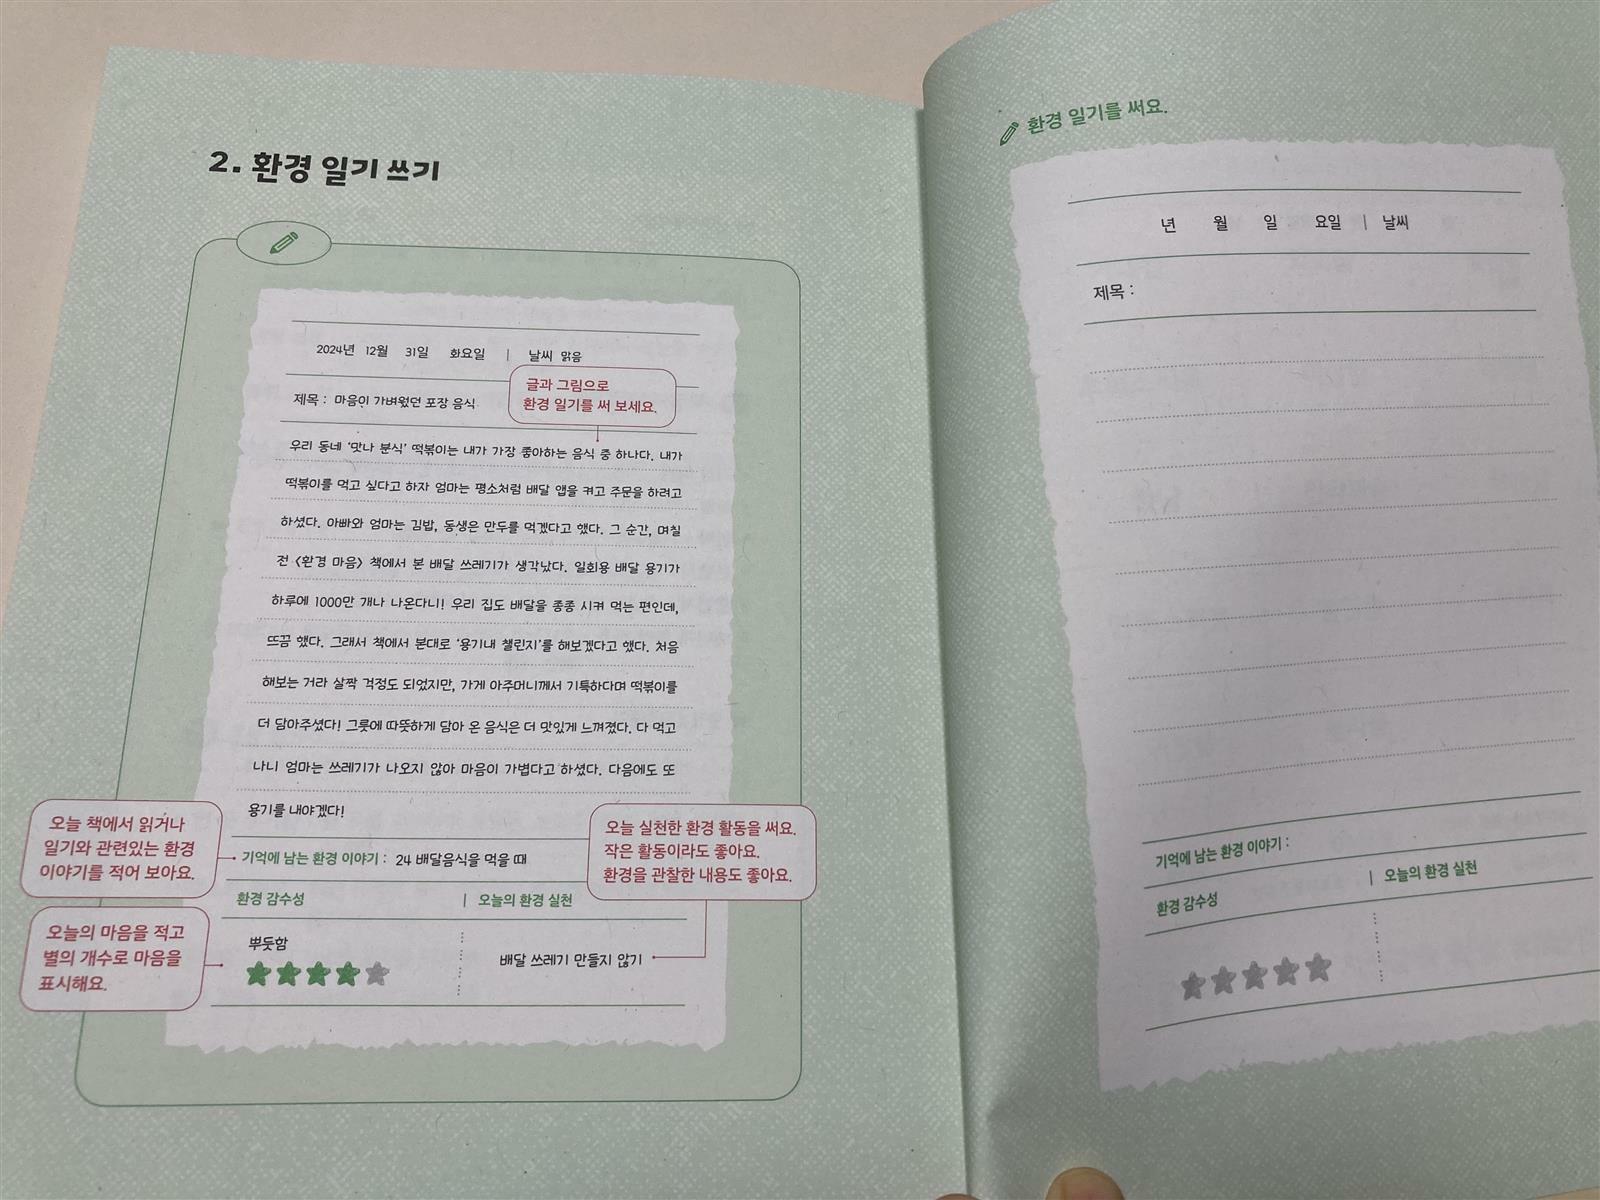 2. 환경 일기 쓰기
2024년 12월 31일 화요일 | 날씨 맑음
글과 그림으로
환경 일기를 써 보세요.
제목 : 마음이 가벼웠던 포장 음식
우리 동네 ‘맛나 분식’ 떡볶이는 내가 가장 좋아하는 음식 중 하나다. 내가
떡볶이를 먹고 싶다고 하자 엄마는 평소처럼 배달 앱을 켜고 주문을 하려고
하셨다. 아빠와 엄마는 김밥, 동생은 만두를 먹겠다고 했다. 그 순간, 며칠
전 <환경 마음> 책에서 본 배달 쓰레기가 생각났다. 일회용 배달 용기가
하루에 1000만 개나 나온다니! 우리 집도 배달을 종종 시켜 먹는 편인데,
뜨끔 했다. 그래서 책에서 본대로 ‘용기내 챌린지’를 해보겠다고 했다. 처음
해보는 거라 살짝 걱정도 되었지만, 가게 아주머니께서 기특하다며 떡볶이를
더 담아주셨다! 그릇에 따뜻하게 담아 온 음식은 더 맛있게 느껴졌다. 다 먹고
나니 엄마는 쓰레기가 나오지 않아 마음이 가볍다고 하셨다. 다음에도 또
용기를 내야겠다!
오늘 책에서 읽거나
일기와 관련있는 환경
이야기를 적어 보아요.
기억에 남는 환경 이야기 : 24 배달음식을 먹을 때
오늘 실천한 환경 활동을 써요.
작은 활동이라도 좋아요.
환경을 관찰한 내용도 좋아요.
환경 감수성 | 오늘의 환경 실천
오늘의 마음을 적고
별의 개수로 마음을
표시해요.
뿌듯함
배달 쓰레기 만들지 않기
환경 일기를 써요.
년 월 일 요일 | 날씨
제목 :
기억에 남는 환경 이야기 :
환경 감수성 | 오늘의 환경 실천